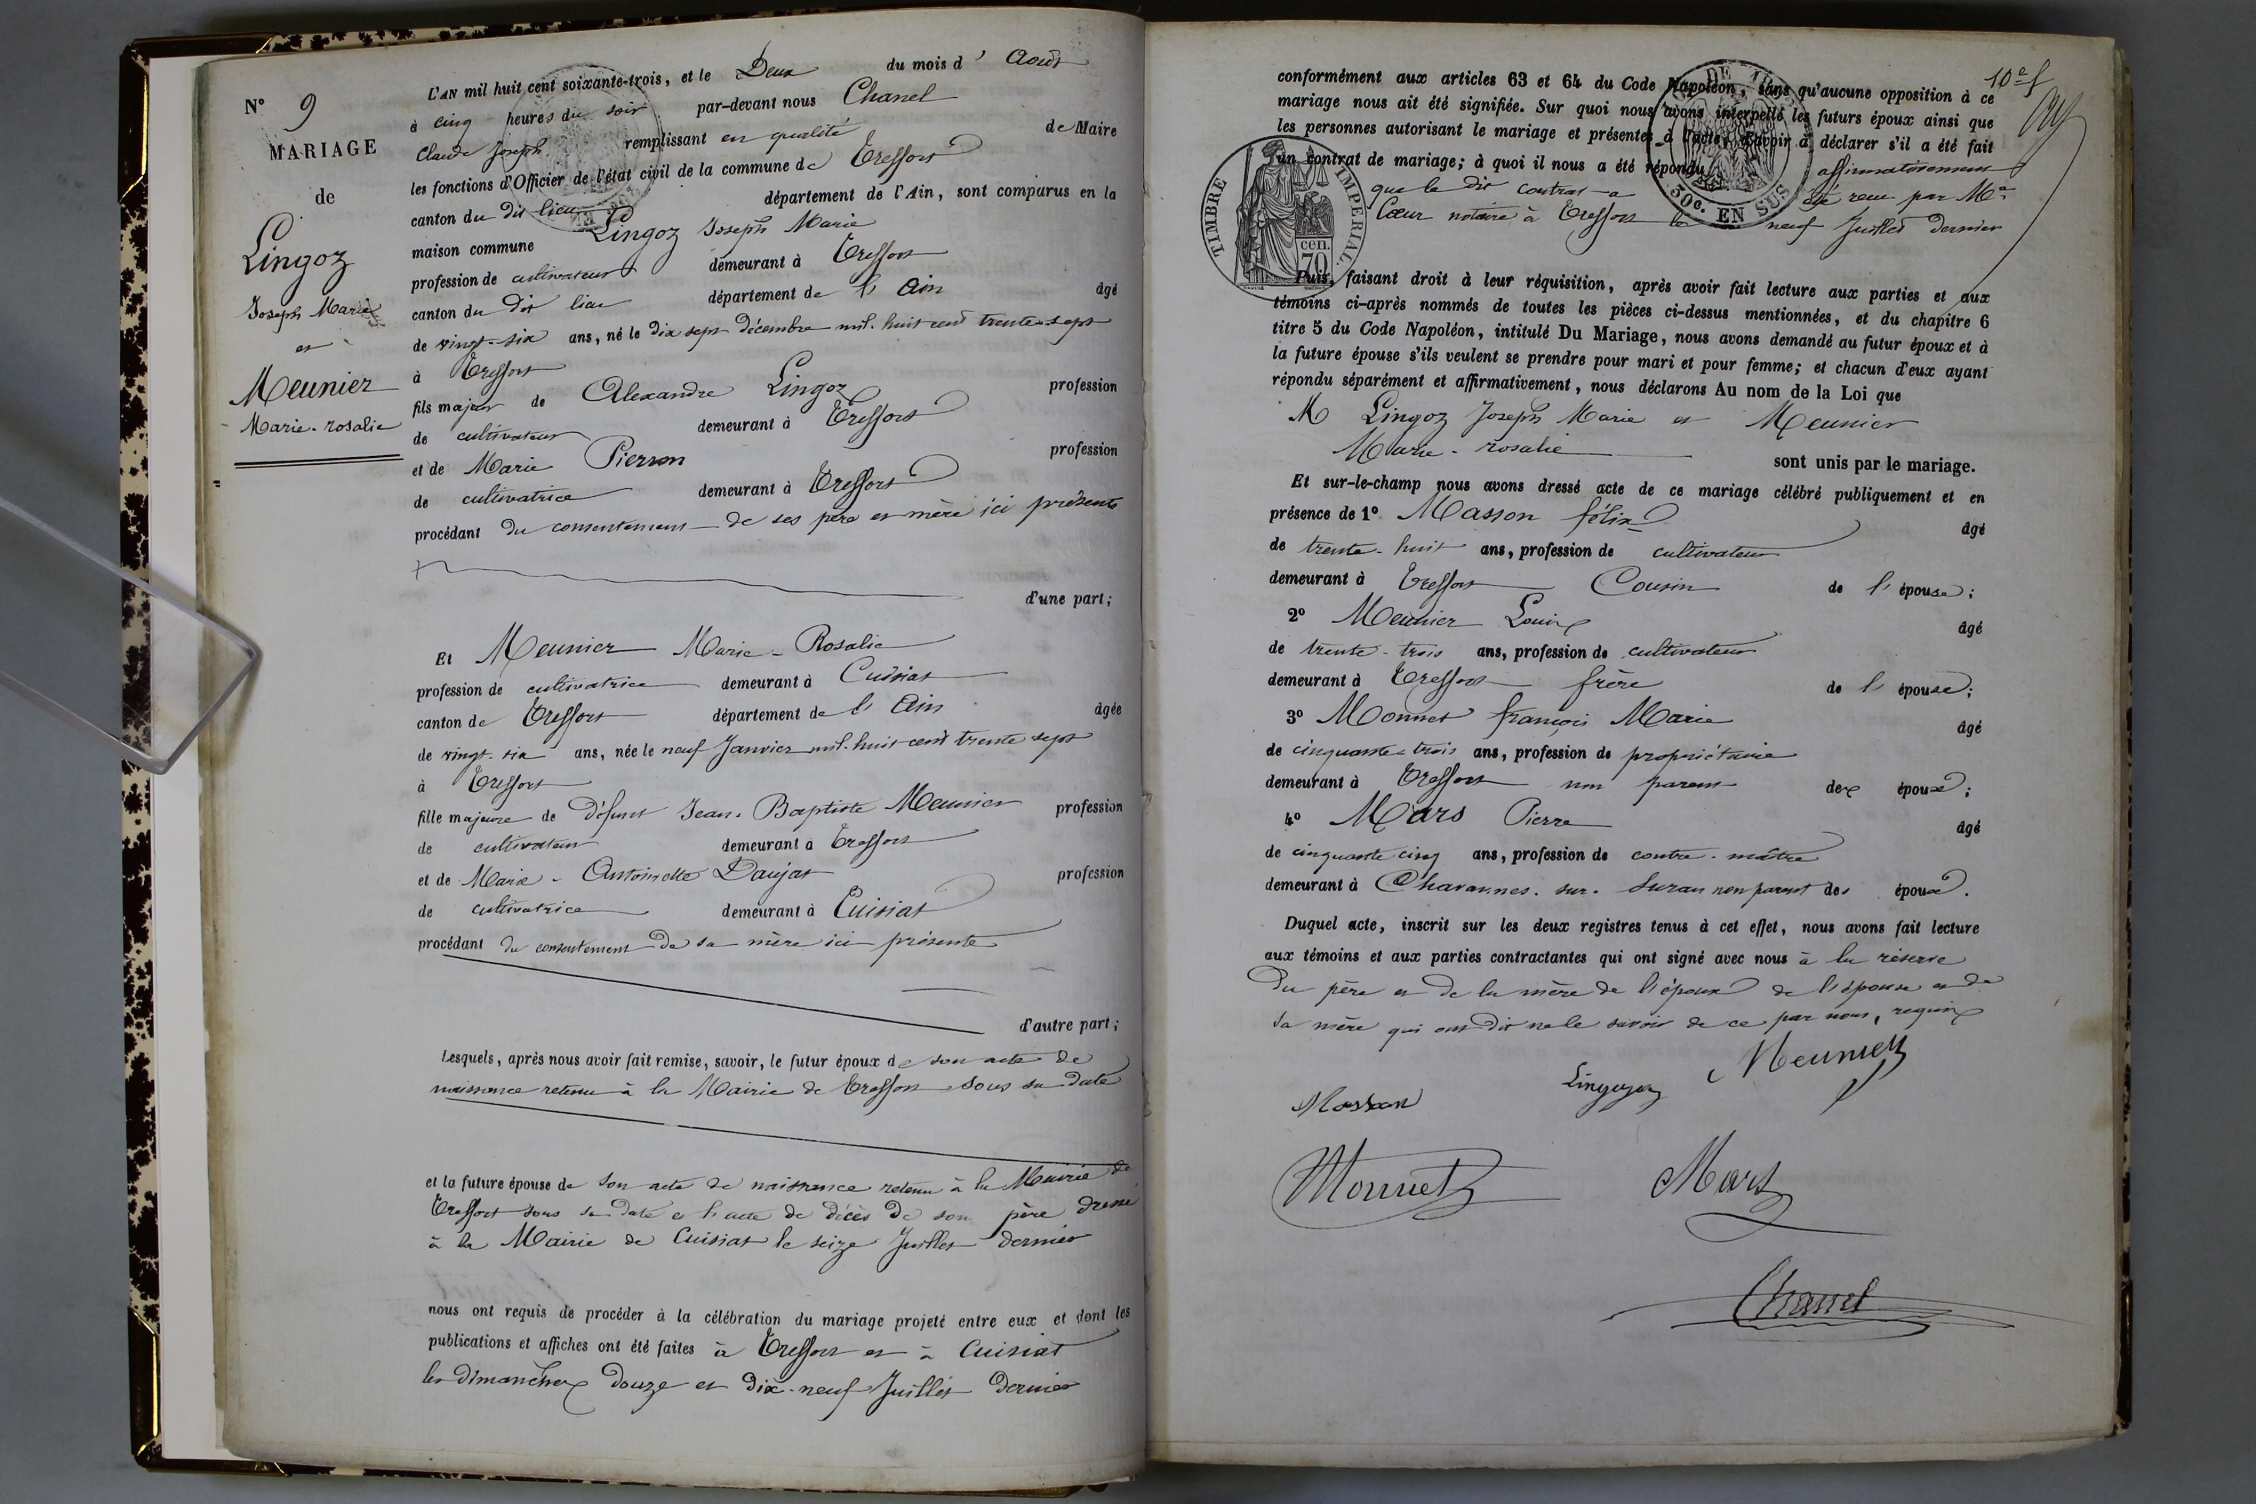 N° 9
MARIAGE
de
Lingoz
Joseph Marie
et
Meunier
Marie-rosalie
L'AN mil huit cent soixante-trois, et le Deux du mois d' Août
à cinq heures du soir par-devant nous Chanel
Claude Joseph remplissant en qualité de Maire
les fonctions d'Officier de l'état civil de la commune de Treffort
canton du dit lieu département de l'Ain, sont comparus en la
maison commune Lingoz Joseph Marie
profession de cultivateur demeurant à Treffort
canton du dit lieu département de l'Ain âgé
de vingt-six ans, né le dix sept décembre mil-huit cent trente-sept
à Treffort
fils majeur de Alexandre Lingoz profession
de cultivateur demeurant à Treffort
et de Marie Pierron profession
de cultivatrice demeurant à Treffort
procédant du consentement de ses père et mère ici présents
d'une part;
Et Meunier Marie-Rosalie
profession de cultivatrice demeurant à Cuisiat
canton de Treffort département de l'Ain âgée
de vingt-six ans, née le neuf Janvier mil-huit cent trente sept
à Treffort
fille majeure de défunt Jean-Baptiste Meunier profession
de cultivateur demeurant à Treffort
et de Marie-Antoinette Daujat profession
de cultivatrice demeurant à Cuisiat
procédant du consentement de sa mère ici présente
d'autre part;
Lesquels, après nous avoir fait remise, savoir, le futur époux de son acte de
naissance retenu à la Mairie de Treffort sous sa date
et la future épouse de son acte de naissance retenu à la Mairie de
Treffort sous sa date et l'acte de décès de son père dressé
à la Mairie de Cuisiat le seize Juillet dernier
nous ont requis de procéder à la célébration du mariage projeté entre eux et dont les
publications et affiches ont été faites à Treffort et à Cuisiat
les dimanches douze et dix-neuf Juillet dernier
10e f
conformément aux articles 63 et 64 du Code Napoléon, sans qu'aucune opposition à ce
mariage nous ait été signifiée. Sur quoi nous avons interpellé les futurs époux ainsi que
les personnes autorisant le mariage et présentes à l'acte, d'avoir à déclarer s'il a été fait
un contrat de mariage; à quoi il nous a été répondu affirmativement
que le dit contrat a été reçu par Me
Cœur notaire à Treffort le neuf Juillet dernier
TIMBRE IMPERIAL
70 cen.
30c. EN SUS
Puis, faisant droit à leur réquisition, après avoir fait lecture aux parties et aux
témoins ci-après nommés de toutes les pièces ci-dessus mentionnées, et du chapitre 6
titre 5 du Code Napoléon, intitulé Du Mariage, nous avons demandé au futur époux et à
la future épouse s'ils veulent se prendre pour mari et pour femme; et chacun d'eux ayant
répondu séparément et affirmativement, nous déclarons Au nom de la Loi que
M Lingoz Joseph Marie et Meunier
Marie-rosalie sont unis par le mariage.
Et sur-le-champ nous avons dressé acte de ce mariage célébré publiquement et en
présence de 1° Masson félix âgé
de trente-huit ans, profession de cultivateur
demeurant à Treffort Cousin de l'épouse;
2° Meunier Louis âgé
de trente-trois ans, profession de cultivateur
demeurant à Treffort frère de l'épouse;
3° Monnet françois Marie âgé
de cinquante-trois ans, profession de propriétaire
demeurant à Treffort non parent des époux;
4° Mars Pierre âgé
de cinquante cinq ans, profession de contre-maître
demeurant à Chavannes-sur-Suran non parent des époux.
Duquel acte, inscrit sur les deux registres tenus à cet effet, nous avons fait lecture
aux témoins et aux parties contractantes qui ont signé avec nous à la réserve
du père et de la mère de l'époux de l'épouse et de
sa mère qui ont dit ne le savoir de ce par nous, requis
Meunier
Masson
Monnet
Mars
Chanel